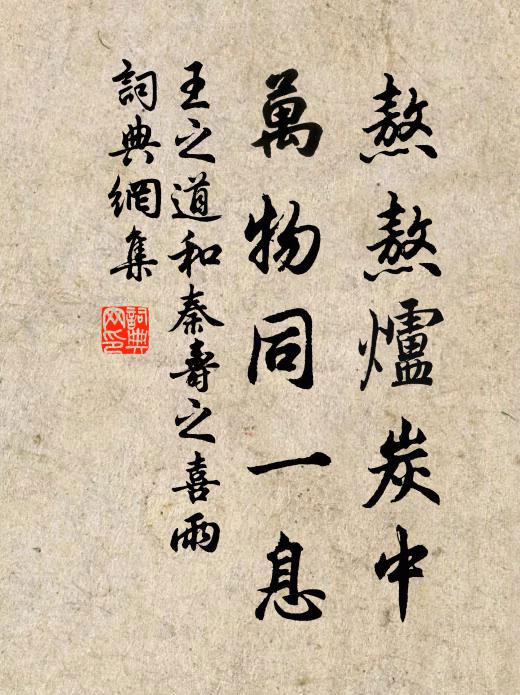 熬熬爐炭中
萬物同一息
王之道和秦壽之喜雨
詞典網集
詞典網印